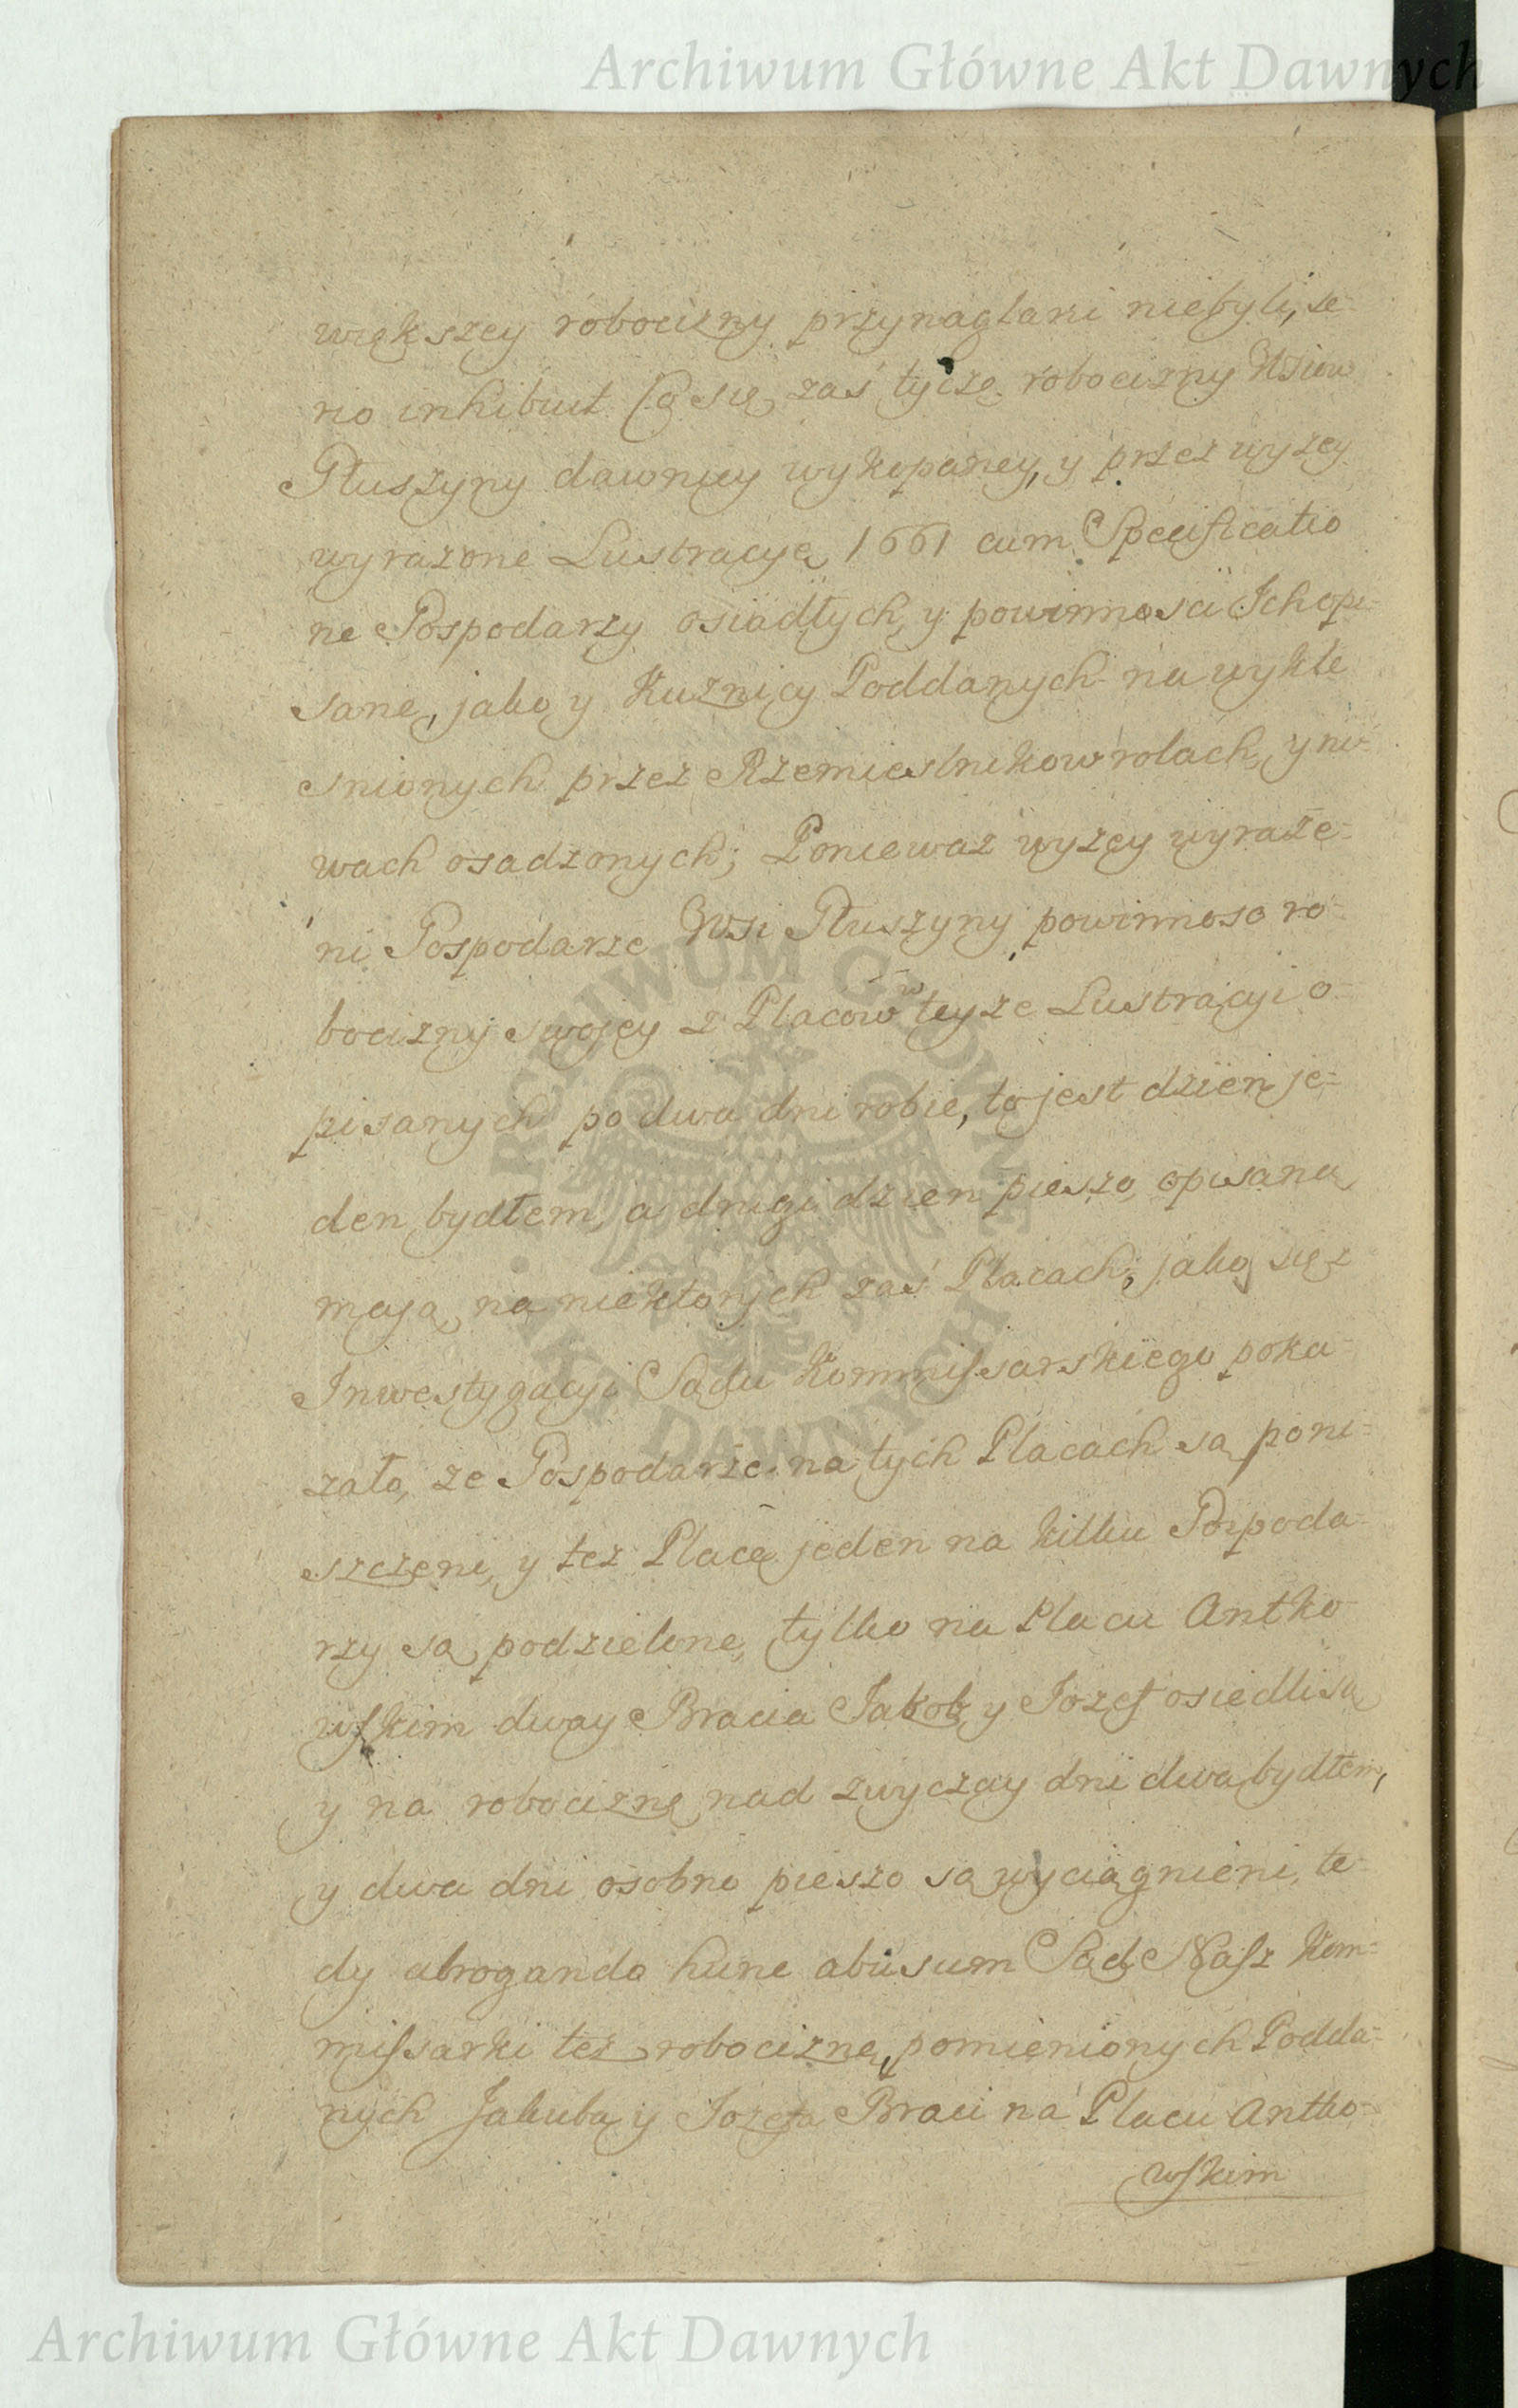 Archiwum Główne Akt Dawnych
większey robocizny przynaglani niebyli, se-
rio inhibuit Co się zaś tycze robocizny Wsiow
Płuszyny dawniey wykopaney, y przez wyzey
wyrazone Lustracyą 1661 cum Specificatio
ne Pospodarzy osiadłych, y powinnosci Ich opi-
sane, jako y Kuznicy Poddanych na wykle
snionych przez Rzemieslnikow rolach, y ni-
wach osadzonych; Poniewaz wyzey wyraże-
ni Pospodarze Wsi Płuszyny powinnosc ro-
bocizny swojey z Placow w teyze Lustracyi o-
pisanych po dwa dni robie, to jest dzień je-
den bydłem, a drugi dzien pieszo opisaną
mają, na niektorych zaś Placach, jako się z
Inwestygacyi Sądu Kommissarskiego poka-
zało, ze Pospodarze na tych Placach są poni-
szczeni, y tez Place jeden na kilku Pospoda-
rzy są podzielone, tylko na Placu Antko-
wskim dway Bracia Jakob y Jozef osiedli są
y na robociznę nad zwyczay dni dwa bydłem,
y dwa dni osobno pieszo są wyciągnieni, te-
dy abrogando hunc abusum Sąd Nasz Kom-
missarki też robociznę pomienionych Podda-
nych Jakuba y Jozefa Braci na Placu Antko-
wskim
ARCHIWUM GŁÓWNE AKT DAWNYCH
Archiwum Główne Akt Dawnych